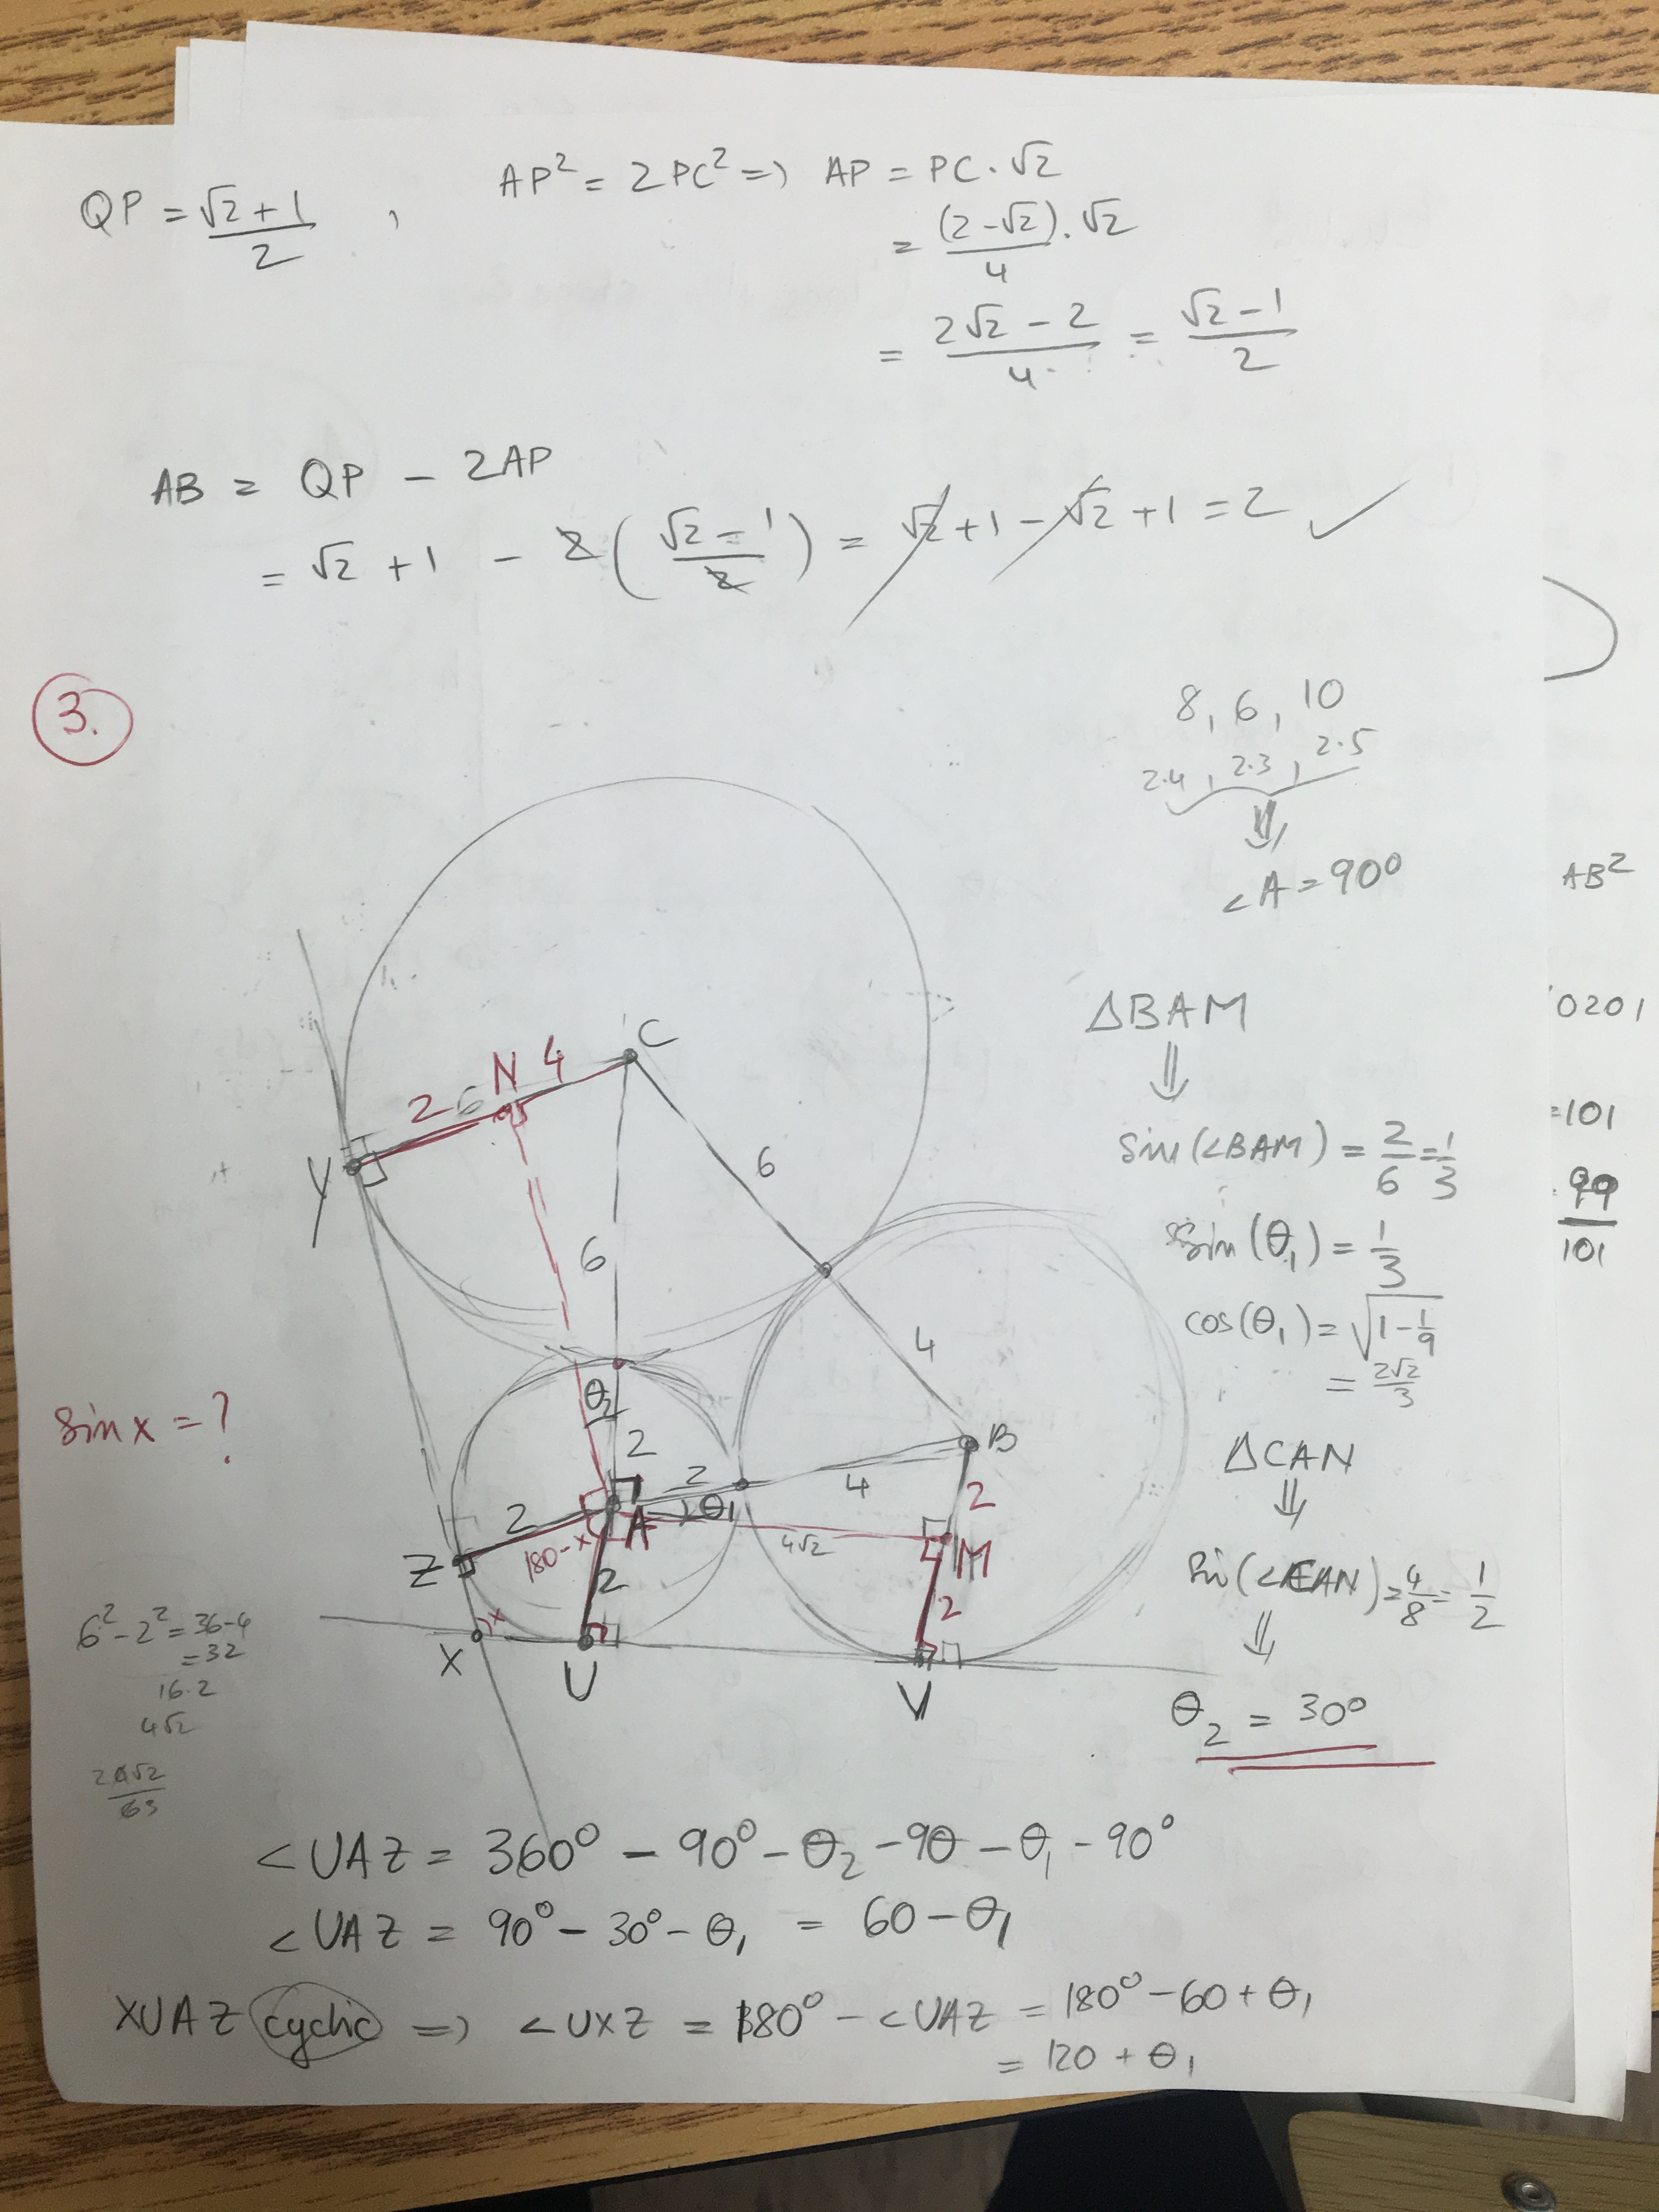 QP = (√2 + 1)/2 , AP² = 2PC² => AP = PC · √2
= (2 - √2)/4 · √2
= (2√2 - 2)/4 = (√2 - 1)/2
AB = QP - 2AP
= √2 + 1 - 2((√2 - 1)/2) = √2 + 1 - √2 + 1 = 2 ✓
3.
8, 6, 10
2·4, 2·3, 2·5
⇓
∠A = 90°
AB²
0201
=101
99
101
△BAM
⇓
sin(∠BAM) = 2/6 = 1/3
sin(θ₁) = 1/3
cos(θ₁) = √(1 - 1/9)
= 2√2/3
△CAN
⇓
sin(∠CAN) = 4/8 = 1/2
⇓
θ₂ = 30°
C
N 4
2 6
Y
6
6
4
θ₂
sin x = ?
2
B
2
4
2
θ₁
A
2
4√2
M
Z
180-x
2
2
x
X
U
V
6² - 2² = 36-4
= 32
16·2
4√2
63
∠UAZ = 360° - 90° - θ₂ - 90 - θ₁ - 90°
∠UAZ = 90° - 30° - θ₁ = 60 - θ₁
XUAZ cyclic => ∠UXZ = 180° - ∠UAZ = 180° - 60 + θ₁
= 120 + θ₁